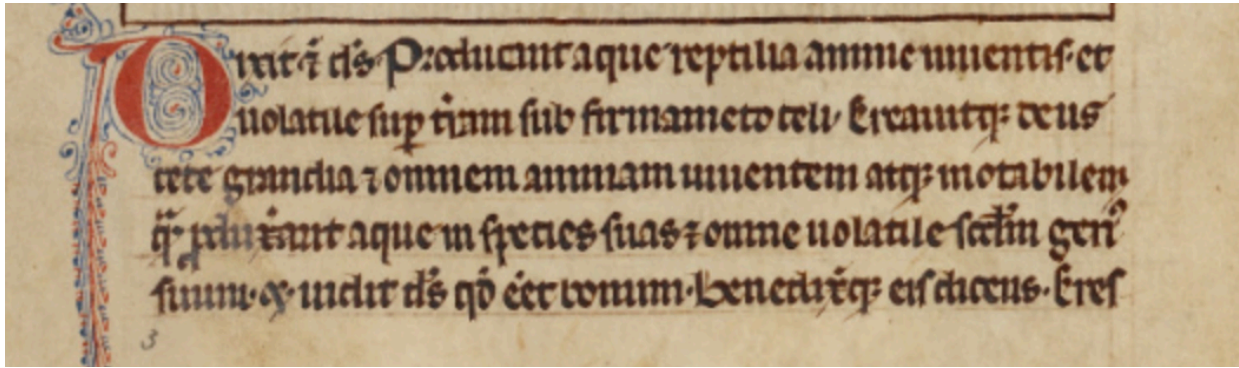 Dixit ⁊ ds̄ Producant aque reptilia anime uiuentis· et
uolatile sup̄ tr̄am sub firmam̄eto celi· Creauitq; deus
cete grandia ⁊ omnem animam uiuentem atq; motabilem
q̄ꝫ ꝓduxer̄ant aque in species suas ⁊ omne uolatile scd̄m genꝰ
suum· ⁊ uidit ds̄ qd̄ ee̅t bonum· benedix̄q; eis dicens· Cres
3